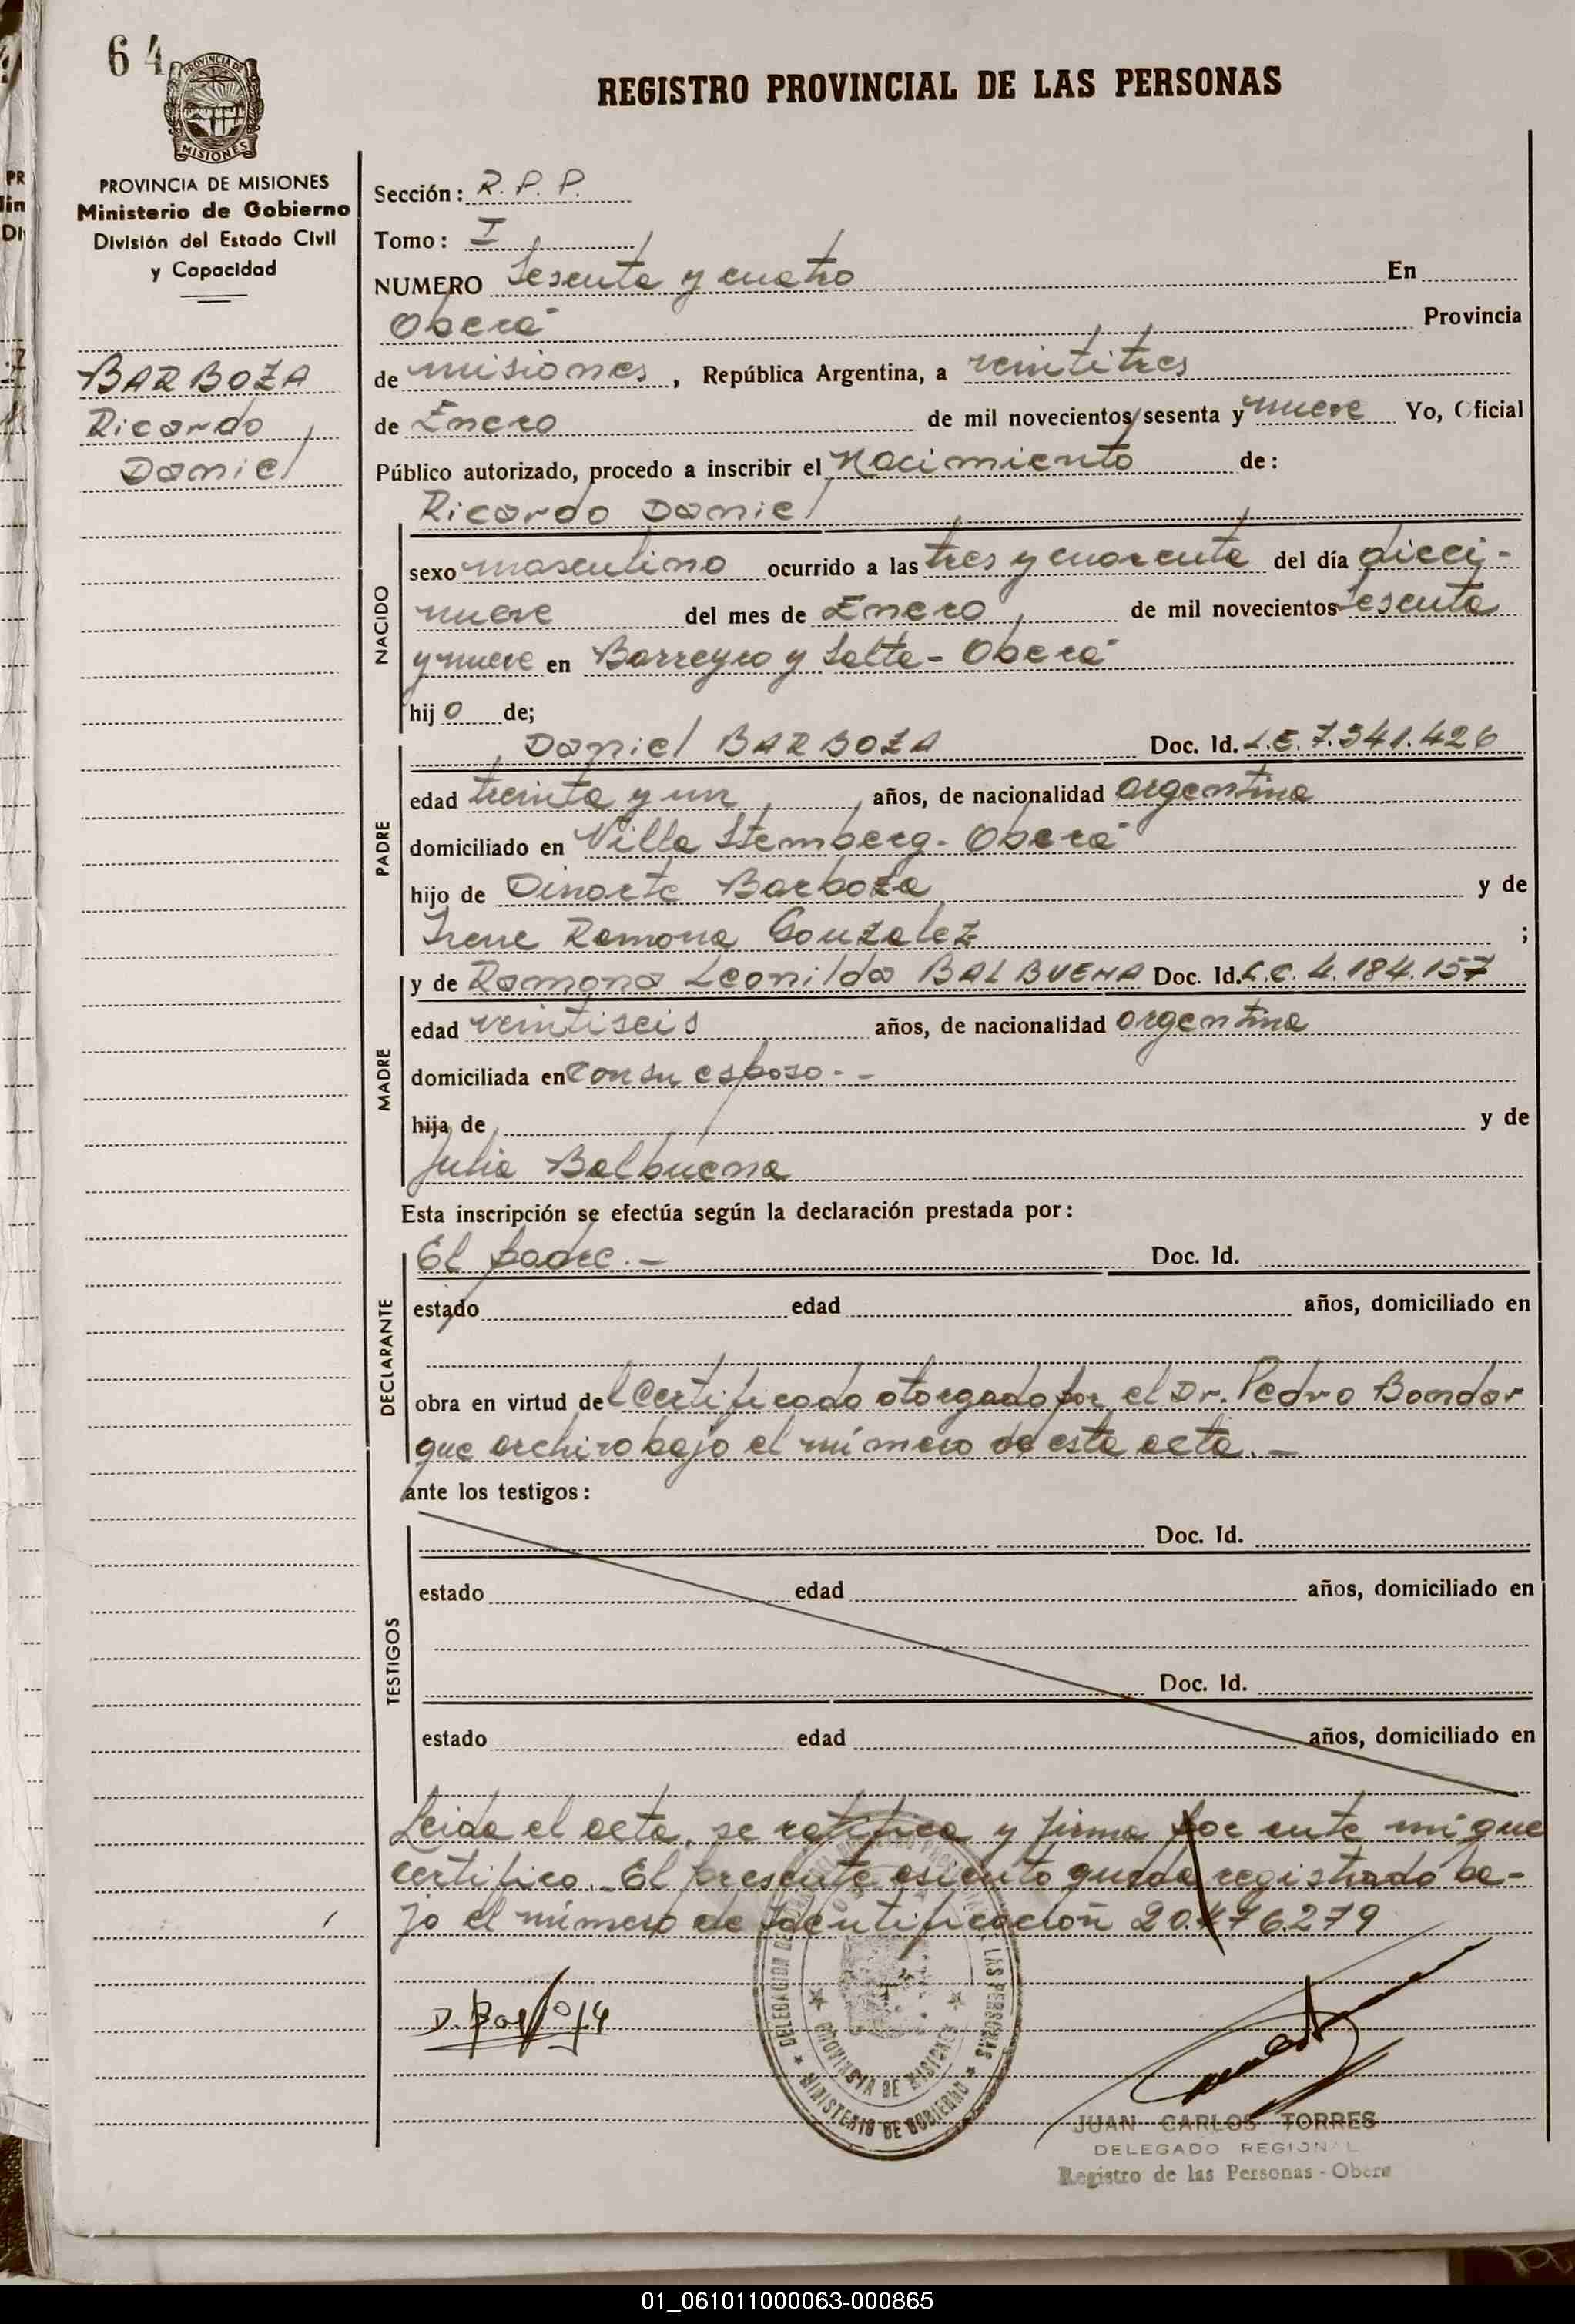 64
PROVINCIA DE
MISIONES
REGISTRO PROVINCIAL DE LAS PERSONAS
PROVINCIA DE MISIONES
Ministerio de Gobierno
División del Estado Civil
y Capacidad
BARBOZA
Ricardo
Daniel
Sección: R. P. P.
Tomo: I
NUMERO Sesenta y cuatro En
Oberá Provincia
de misiones, República Argentina, a veintitres
de Enero de mil novecientos sesenta y nueve Yo, Oficial
Público autorizado, procedo a inscribir el Nacimiento de:
Ricardo Daniel
NACIDO
sexo masculino ocurrido a las tres y cuarenta del día dieci-
nueve del mes de Enero de mil novecientos sesenta
y nueve en Barreyro y Salta - Oberá
hijo de;
PADRE
Daniel BARBOZA Doc. Id. L.E. 7.541.426
edad treinta y un años, de nacionalidad argentina
domiciliado en Villa Stemberg - Oberá
hijo de Dinarte Barboza y de
Irene Ramona Gonzalez ;
MADRE
y de Ramona Leonilda BALBUENA Doc. Id. L.C. 4.184.157
edad veintiseis años, de nacionalidad argentina
domiciliada en con su esposo. - -
hija de y de
Julia Balbuena
Esta inscripción se efectúa según la declaración prestada por:
DECLARANTE
El padre. - Doc. Id.
estado edad años, domiciliado en
obra en virtud del Certificado otorgado por el Dr. Pedro Bondar
que archivo bajo el número de esta acta. -
ante los testigos:
TESTIGOS
Doc. Id.
estado edad años, domiciliado en
Doc. Id.
estado edad años, domiciliado en
Leida el acta, se ratifica y firma por ante mi que
certifico. - El presente asiento queda registrado ba-
jo el número de Identificación 20.476.279
D. Barboza
PROVINCIA DE MISIONES
MINISTERIO DE GOBIERNO
LAS PERSONAS
JUAN CARLOS TORRES
DELEGADO REGIONAL
Registro de las Personas - Obera
01_061011000063-000865